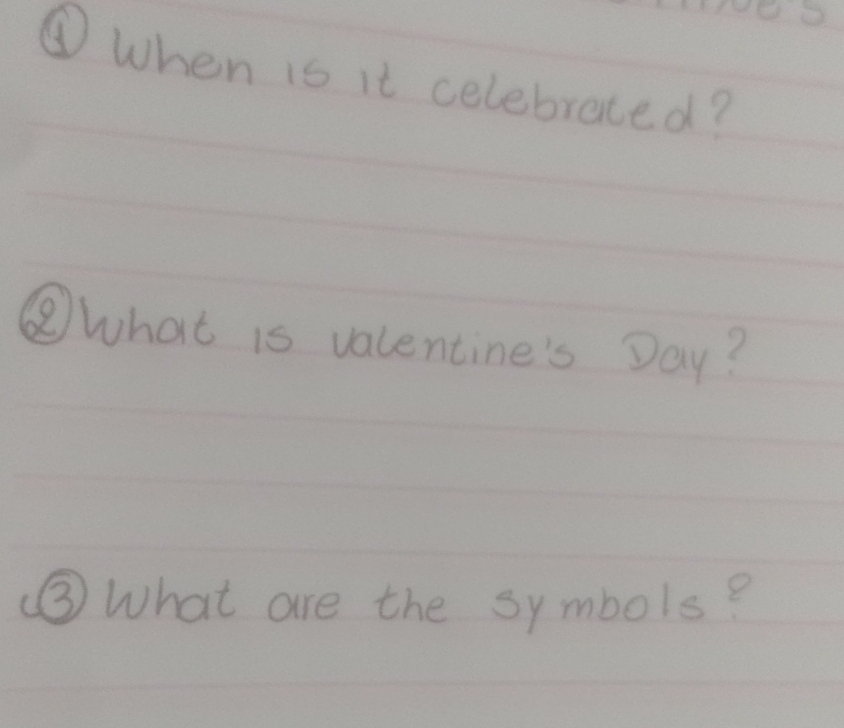 ① When is it celebrated?
② What is valentine's Day?
③ What are the symbols?